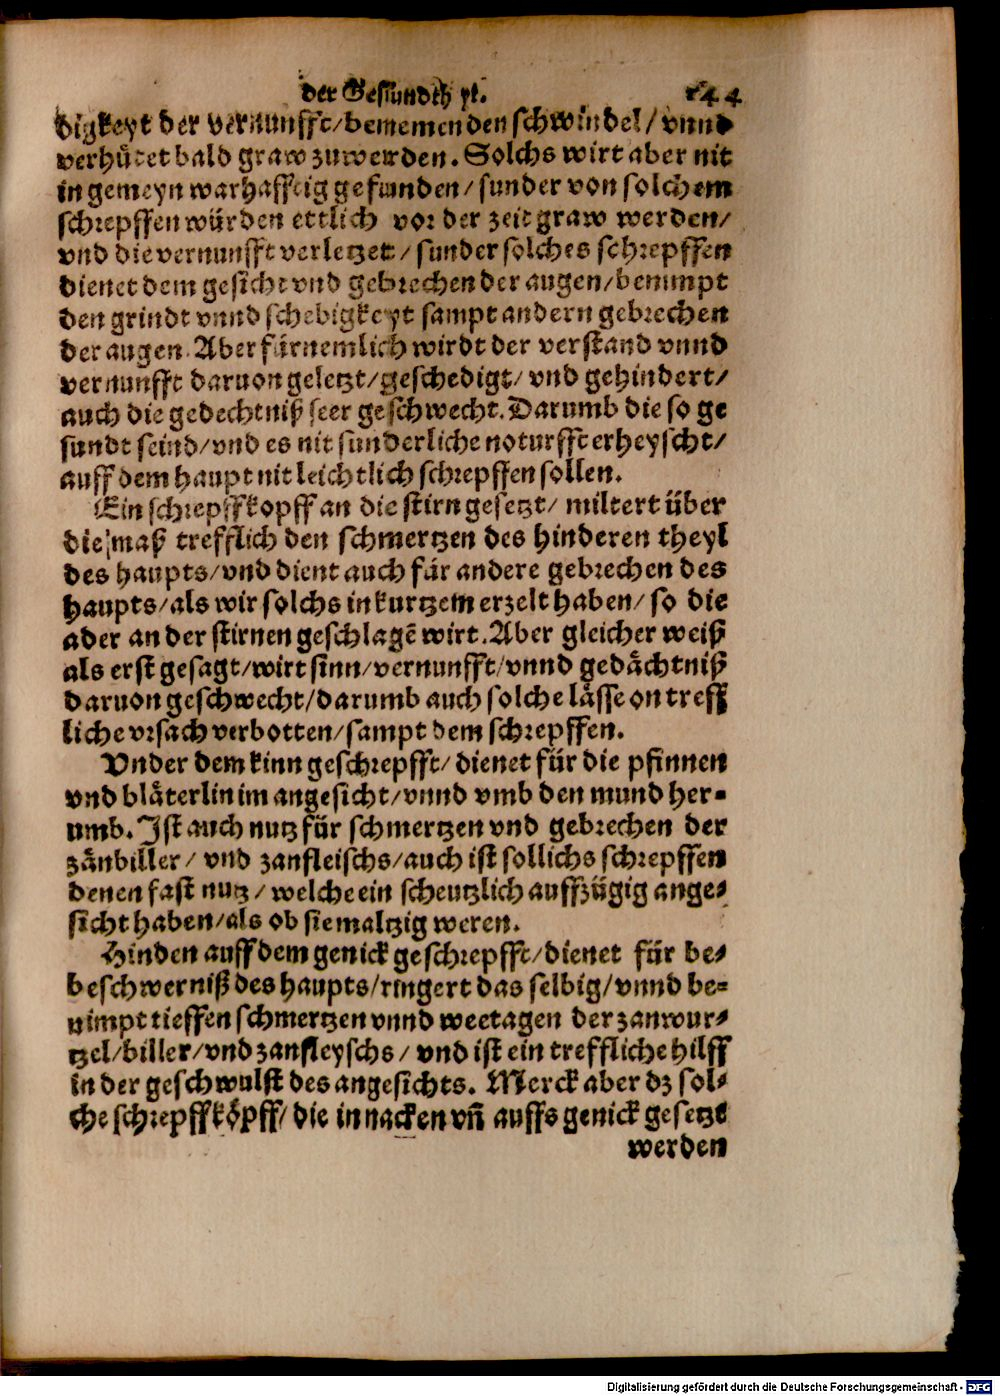 der Gesundth yt. 144
digkeyt der vernunfft/bememen den schwindel/vnnd
verhütet bald graw zuwerden. Solchs wirt aber nit
in gemeyn warhafftig gefunden/sunder von solchem
schrepffen würden ettlich vor der zeit graw werden/
vnd die vernunfft verletzet/sunder solches schrepffen
dienet dem gesicht vnd gebrechen der augen/benimpt
den grindt vnnd schebigkeyt sampt andern gebrechen
der augen. Aber fürnemlich wirdt der verstand vnnd
vernunfft daruon geletzt/geschedigt/vnd gehindert/
auch die gedechtniß seer geschwecht. Darumb die so ge
sundt seind/vnd es nit sunderliche noturfft erheyscht/
auff dem haupt nit leichtlich schrepffen sollen.
Ein schrepffkopff an die stirn gesetzt/ miltert über
die maß trefflich den schmertzen des hinderen theyl
des haupts/vnd dient auch für andere gebrechen des
haupts/als wir solchs in kurtzem erzelt haben/so die
ader an der stirnen geschlagē wirt. Aber gleicher weiß
als erst gesagt/wirt sinn/vernunfft/vnnd gedächtniß
daruon geschwecht/darumb auch solche lässe on treff
liche vrsach verbotten/sampt dem schrepffen.
Vnder dem kinn geschrepfft/dienet für die pfinnen
vnd bläterlin im angesicht/vnnd vmb den mund her-
umb. Ist auch nutz für schmertzen vnd gebrechen der
zänbiller/ vnd zanfleischs/auch ist sollichs schrepffen
denen fast nutz/welche ein scheutzlich auffzügig ange-
sicht haben/als ob sie maltzig weren.
Hinden auff dem genick geschrepfft/dienet für be-
beschwerniß des haupts/ringert das selbig/vnnd be-
nimpt tieffen schmertzen vnnd weetagen der zanwur-
tzel/biller/vnd zanfleyschs/vnd ist ein treffliche hilff
in der geschwulst des angesichts. Merck aber dz sol-
che schrepffköpff/die in nacken vñ auffs genick gesetzt
werden
Digitalisierung gefördert durch die Deutsche Forschungsgemeinschaft - DFG